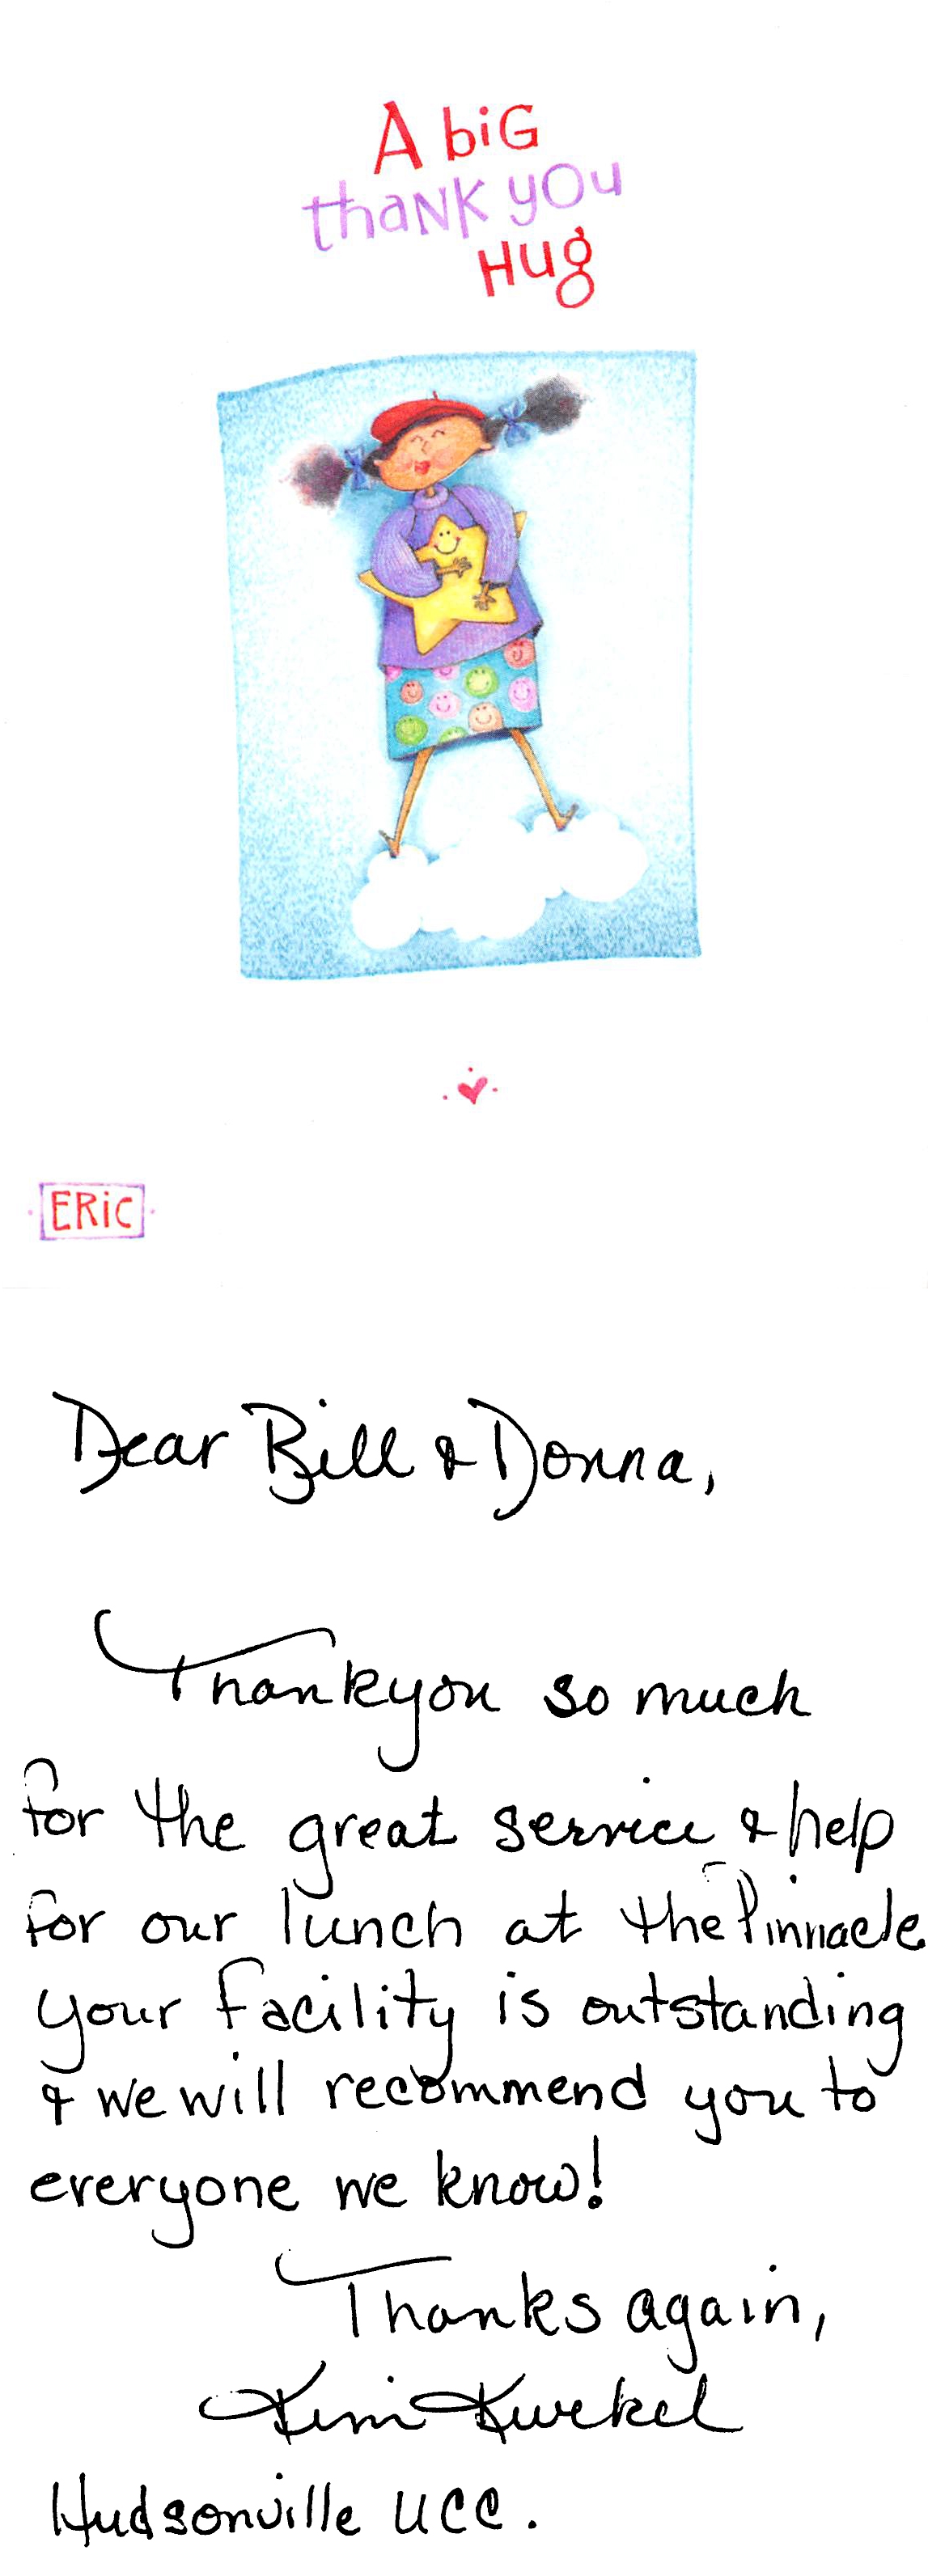 A biG
thaNK yOu
Hug
ERiC
Dear Bill & Donna,
Thankyou so much
for the great service & help
for our lunch at the Pinnacle
your facility is outstanding
& we will recommend you to
everyone we know!
Thanks again,
Kim Kuekel
Hudsonville UCC.